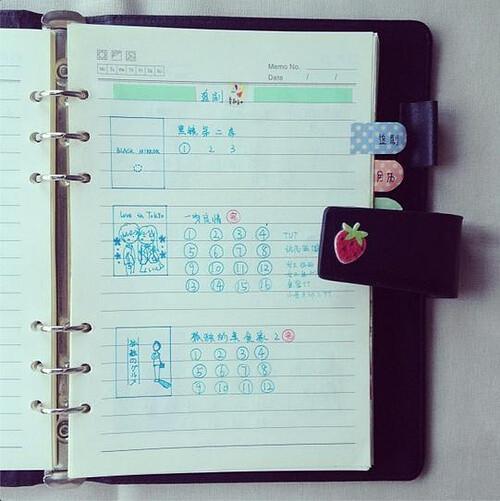 Memo No.
Mo Tu We Th Fr Sa Su
Date / /
追剧
黑镜第二季
BLACK MIRROR
① 2 3
追剧
Love in Tokyo
一吻定情 完
① ② ③ ④
TUT
⑤ ⑥ ⑦ ⑧
⑨ ⑩ ⑪ ⑫
⑬ ⑭ ⑮ ⑯
孤独的美食家2 完
① ② ③ ④
⑤ ⑥ ⑦ ⑧
⑨ ⑩ ⑪ ⑫
孤独のグルメ